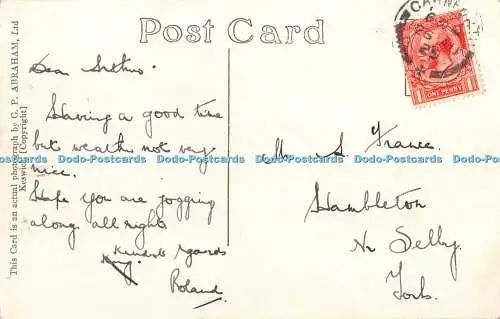 Post Card
Dear
Having a good time
but weath not very
nice.
Hope you are jogging
along all right.
Kindest regards
Roland
M. S. France.
Hambleton
Nr Selby.
Yorks.
ONE PENNY
This Card is an actual photograph by G. P. ABRAHAM, Ltd
Keswick [Copyright]
Dodo-Postcards Dodo-Postcards Dodo-Postcards Dodo-Postcards Dodo-Postcards